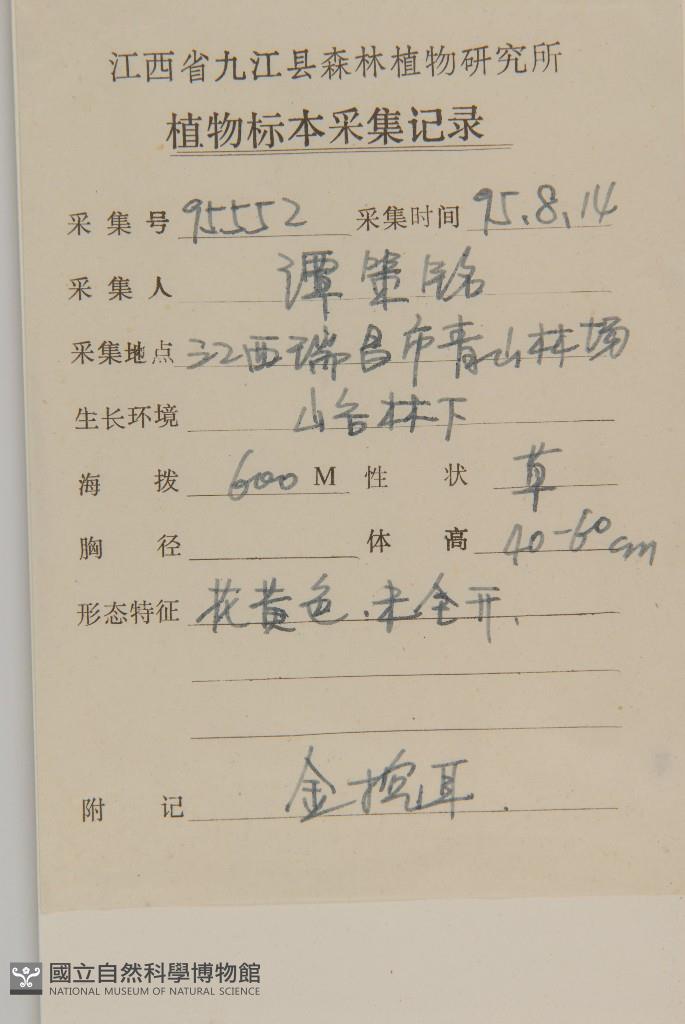 江西省九江县森林植物研究所
植物标本采集记录
采集号 95552 采集时间 95.8.14
采集人 谭策铭
采集地点 江西瑞昌市青山林场
生长环境 山谷林下
海拨 600 M 性状 草
胸径 体高 40-60cm
形态特征 花黄色.未全开.
附记 金挖耳.
國立自然科學博物館
NATIONAL MUSEUM OF NATURAL SCIENCE